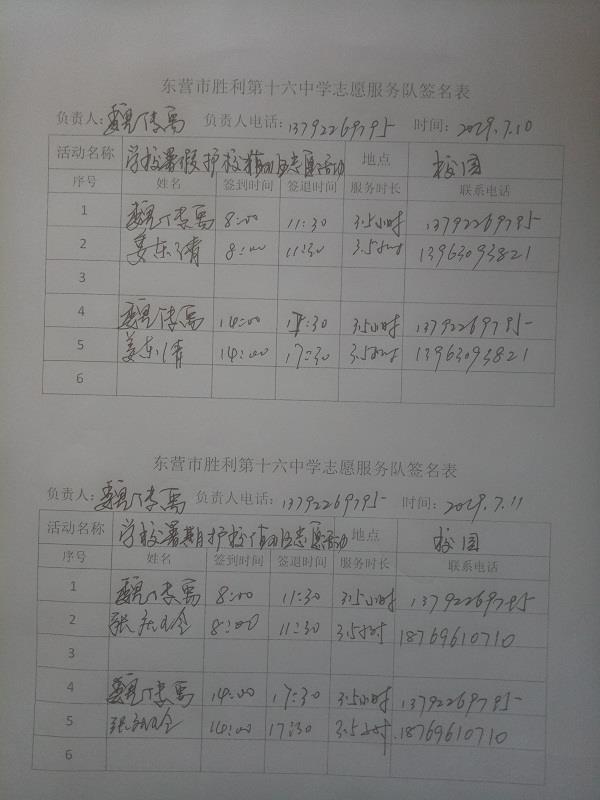 东营市胜利第十六中学志愿服务队签名表
负责人: 魏传禹 负责人电话: 13792269795 时间: 2019.7.10
活动名称 学校暑假护校值班志愿活动 地点 校园
序号 姓名 签到时间 签退时间 服务时长 联系电话
1 魏传禹 8:00 11:30 3.5小时 13792269795
2 姜东清 8:00 11:30 3.5小时 13963093821
3
4 魏传禹 14:00 17:30 3.5小时 13792269795
5 姜东清 14:00 17:30 3.5小时 13963093821
6
东营市胜利第十六中学志愿服务队签名表
负责人: 魏传禹 负责人电话: 13792269795 时间: 2019.7.11
活动名称 学校暑期护校值班志愿活动 地点 校园
序号 姓名 签到时间 签退时间 服务时长 联系电话
1 魏传禹 8:00 11:30 3.5小时 13792269795
2 张 8:00 11:30 3.5小时 18769610710
3
4 魏传禹 14:00 17:30 3.5小时 13792269795
5 张 14:00 17:30 3.5小时 18769610710
6